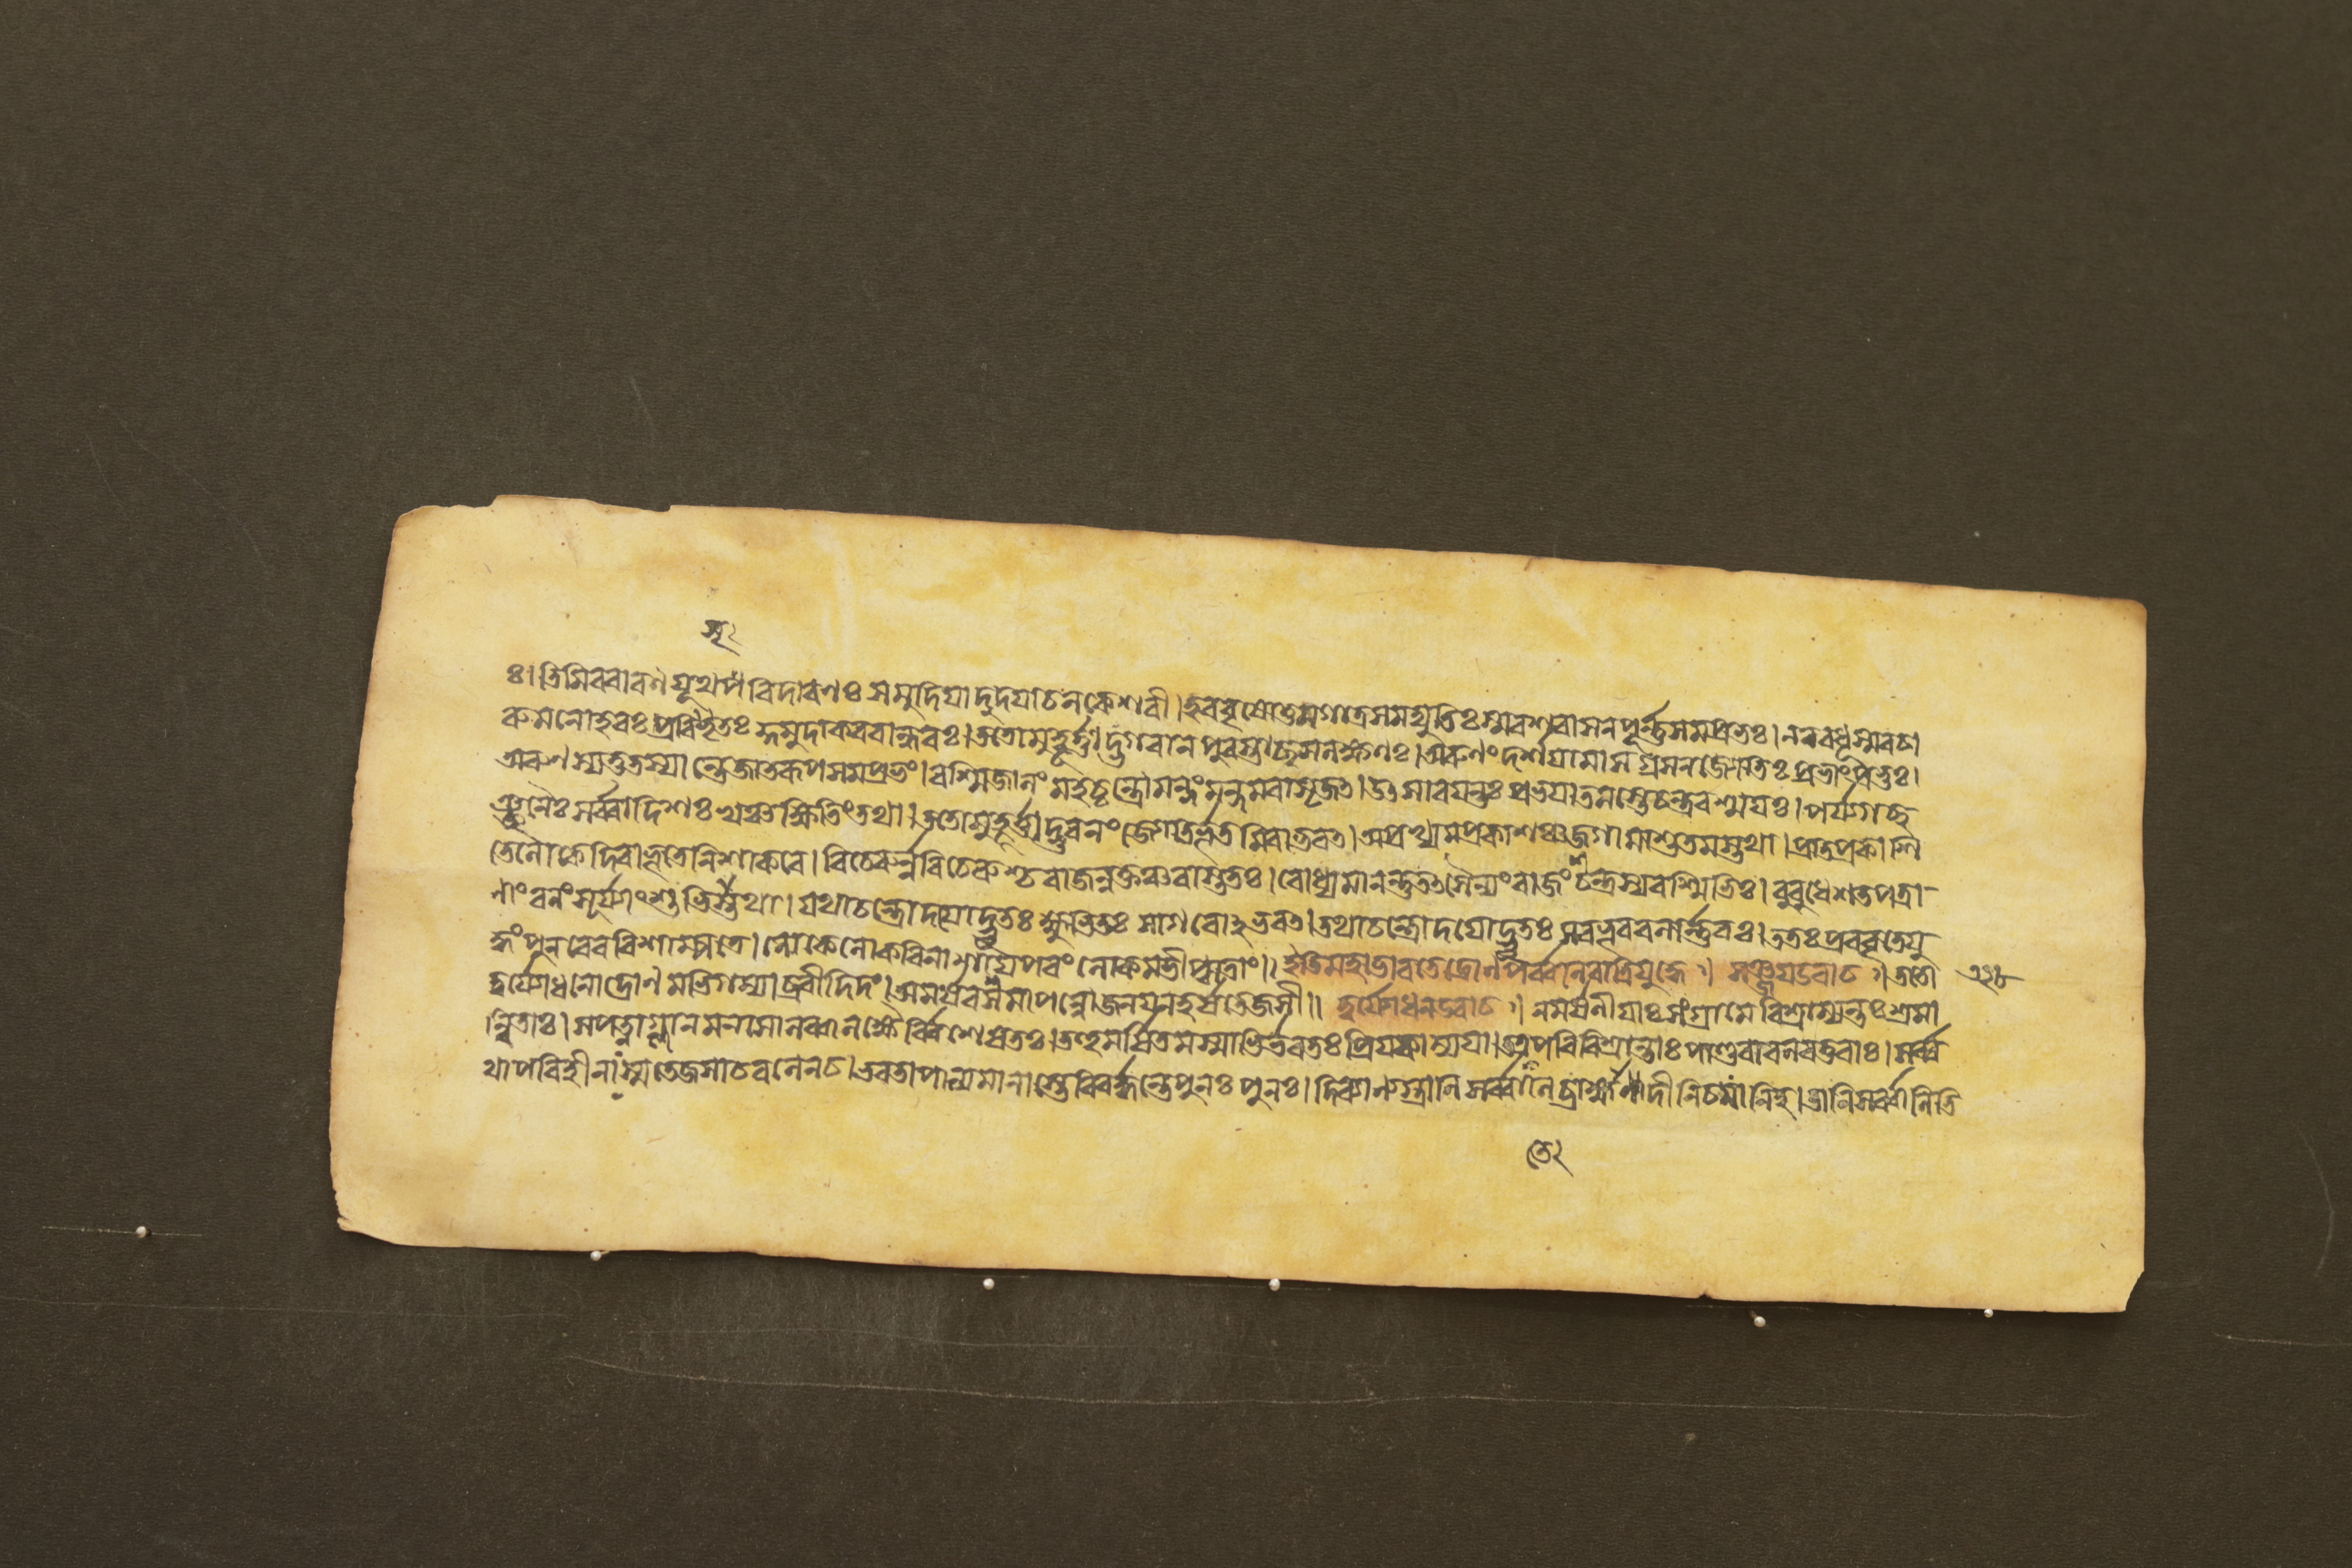 ঃ। তিমিরবারণযূথপবিদারণঃ সমুদিয়াদুদয়াচলকেশরী। হরবৃষোত্তমগাত্রসমদ্যুতিঃ স্মরশরাসনপূর্ণ্ণসমপ্রভঃ। নববধূস্মরচা
রুমনোহরঃ কুমুদাকরবান্ধবঃ। ততোমুহূর্ত্তাদ্ভগবান পুরস্তাচ্ছশলক্ষণঃ। অরুণং দর্শয়ামাস গ্রসনজ্যোতিঃপ্রভাংপ্রভুঃ।
অরুণস্যতুতস্যানুজাতরূপসমপ্রভং। রশ্মিজালং মহচ্চন্দ্রোমন্দংমন্দমবাসৃজত। উৎসারয়ন্তঃ প্রভয়াতমস্তেচন্দ্ররশ্ময়ঃ। পর্য্যগচ্ছ
ঞ্ছনৈঃ সর্ব্বাদিশঃ খঞ্চক্ষিতিংতথা। ততোমুহূর্ত্তাদ্ভুবনং জ্যোতির্ভূতমিবাভবত। অপ্রখ্যমপ্রকাশঞ্চজগামাশুতমস্তথা। প্রতিপ্রকাশি
তেলোকেদিবাভূতেনিশাকরে। বিচেরুর্ন্নবিচেরুশ্চরাজন্নক্তঞ্চরাস্ততঃ। বোধ্যমানন্তুতৎসৈন্যংরাজংশ্চন্দ্রস্যরশ্মিভিঃ। বুবুধেশতপত্রা
ণাংবনংসূর্য্যাংশুভির্যথা। যথাচন্দ্রোদয়োদ্ধূতঃ ক্ষুভিতঃ সাগরোহভবত। তথাচন্দ্রোদয়োদ্ধূতঃ সবভূববলার্ণ্ণবঃ। ততঃপ্রববৃতেযু
দ্ধংপুনরেববিশাম্পতে। লোকেলোকবিনাশায়পরংলোকমভীপ্সতাং॥ ইতিমহাভারতেদ্রোণপর্ব্বণিরাত্রিযুদ্ধে॥ সঞ্জয়উবাচ॥ ততো
দুর্য্যোধনোদ্রোণমভিগম্যাব্রবীদিদং। অমর্ষবশমাপন্নোজনয়নহর্ষতেজসী॥ দুর্য্যোধনউবাচ॥ নমর্ষণীয়াঃসংগ্রামে বিশ্রাম্যন্তঃশ্রমা
ন্বিতাঃ। সপত্নাগ্লানমনসোলব্ধলক্ষৈর্ব্বিশেষতঃ। ভবতঃপ্রিয়কাম্যয়া। তএতেপরিবিশ্রান্তাঃ পাণ্ডবাবলবত্তরাঃ। সর্ব্ব
থাপরিহীনাঃস্মতেজসাচবলেনচ। ভবতাপাল্যমানাস্তেবিবর্দ্ধন্তেপুনঃ পুনঃ। দিব্যান্যস্ত্রাণিসর্ব্বাণি তানিসর্ব্বাণিতি
তে২